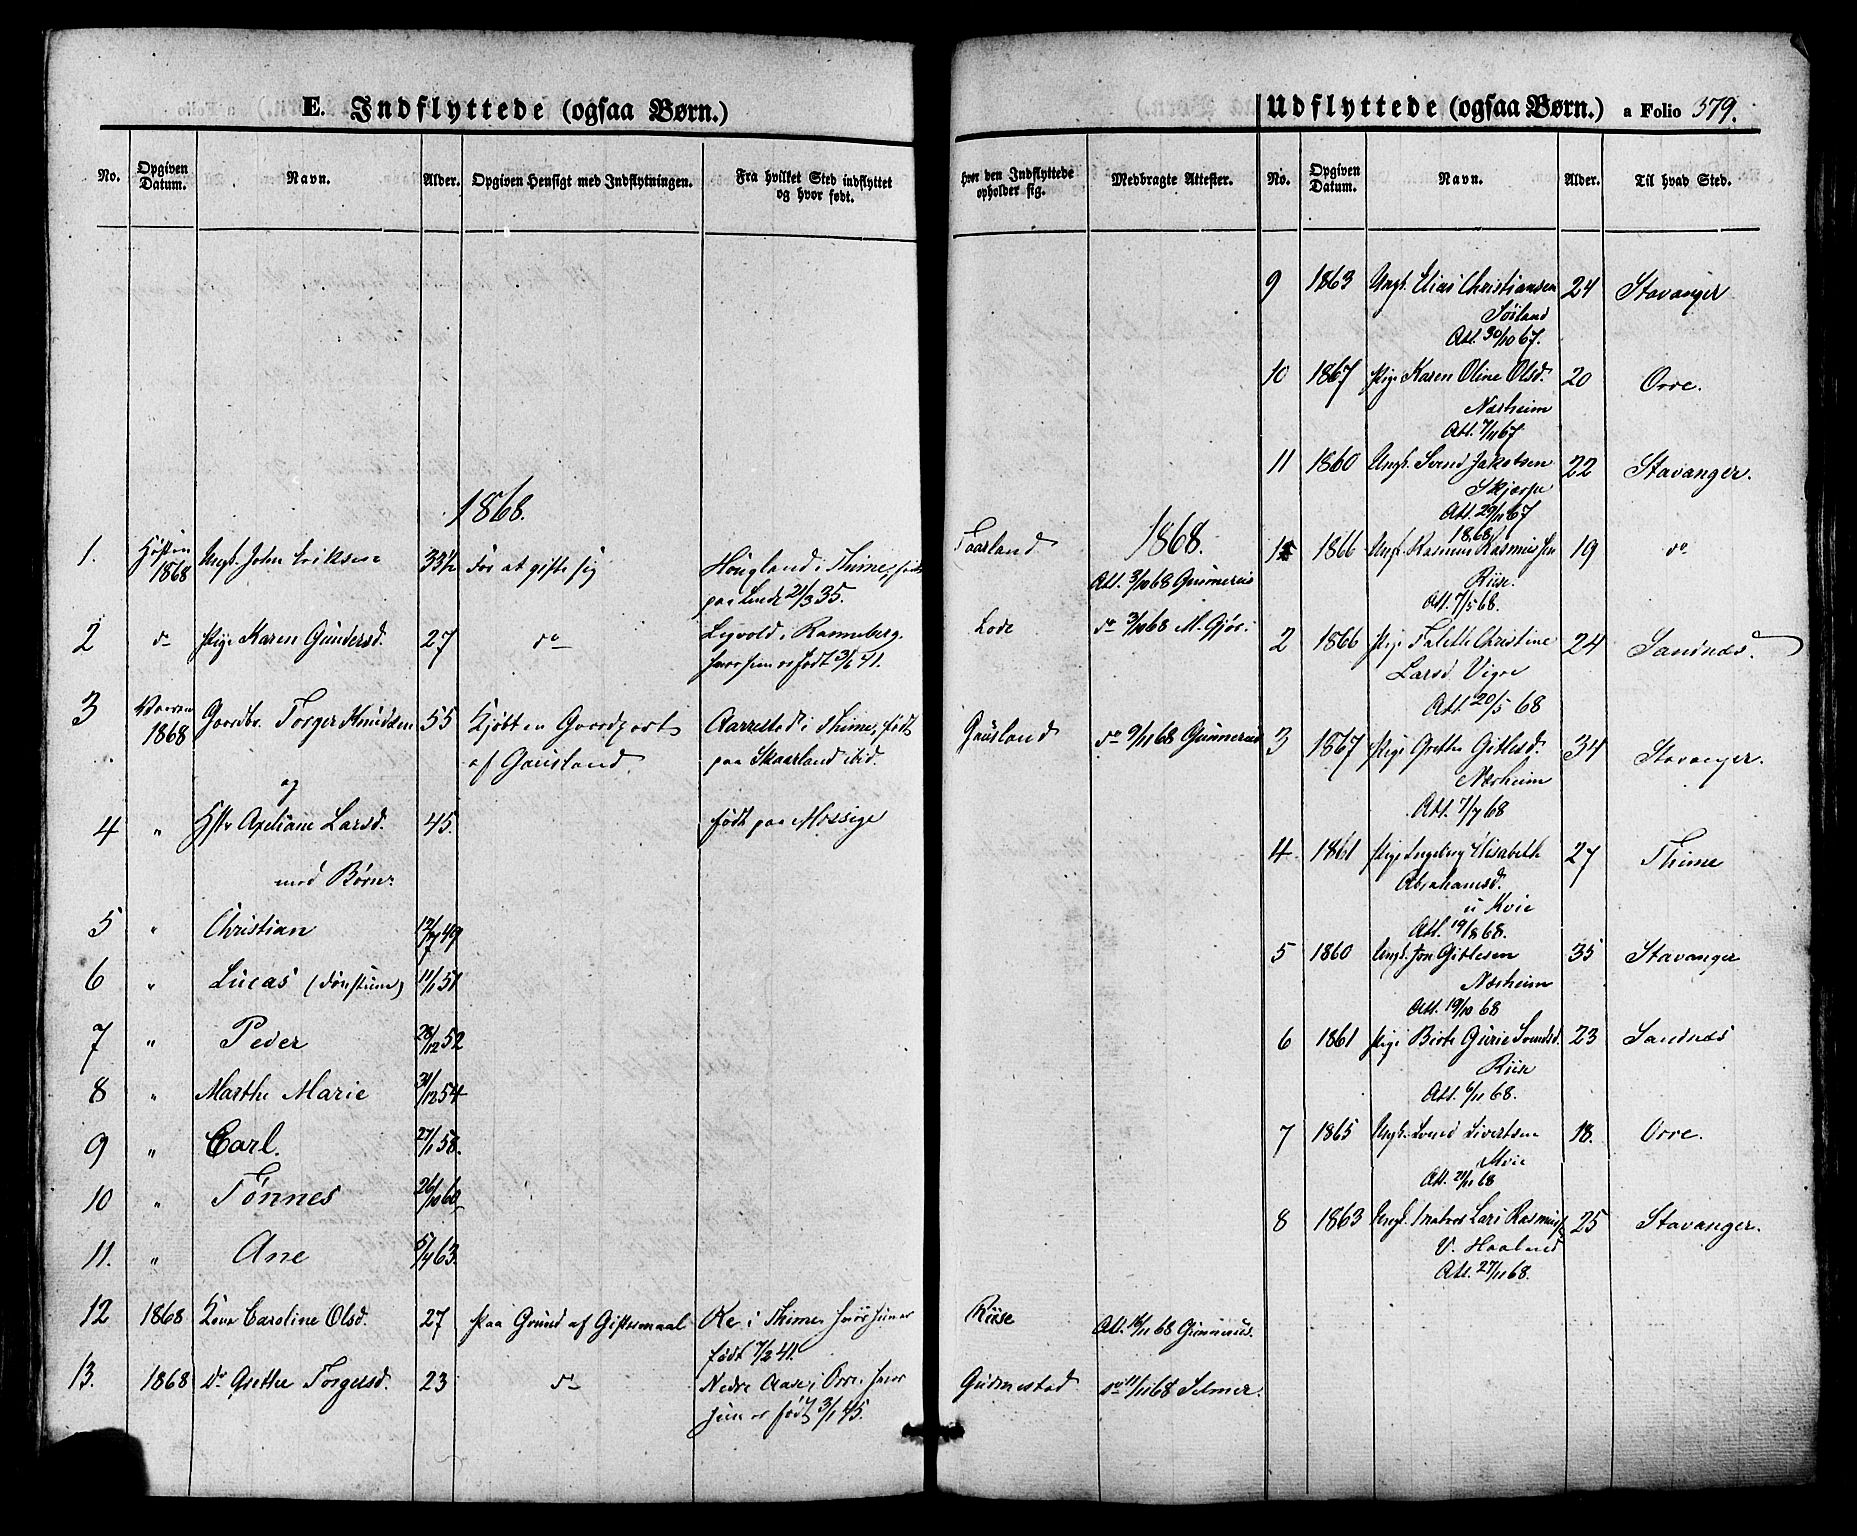 E. Indflyttede (ogsaa Børn.)
No. Opgiven Datum. Navn. Alder. Opgiven Hensigt med Indflytningen. Fra hvilket Sted indflyttet og hvor født.
1868.
1. Høsten 1868 Ungk. John Eriksen 33½ For at gifte sig Høugland i Thime, født
paa Lende 21/3 35.
2 do Pige Karen Gundersd. 27 do Leyvold i Renneberg.
hvor hun er født 3/1 41.
3 Vaaren 1868 Gaardbr. Torger Knudsen 55 Kjøbt en Gaardpart Aarrestad i Thime, født
af Gausland. paa Skaarland ibid.
og
4 " Hstr Axeliane Larsd. 45. født paa Mossige
med Børn:
5 " Christian 12/7 49
6 " Lucas (døvstum) 11/1 51
7 " Peder 28/12 52
8 " Marthe Marie 31/12 54
9 " Carl. 27/1 58.
10 " Tønnes 26/10 60
11. " Ane 5/4 63.
12 1868 Kone Caroline Olsd. 27 Paa Grund af Giftermaal Re i Thime, hvor hun er
født 7/2 41.
13. 1868 do Grethe Torgersd. 23 do Nedre Aase i Orre, hvor
hun er født 3/1 45.
Udflyttede (ogsaa Børn.) a Folio 379.
Hvor den Indflyttede opholder sig. Medbragte Attester. No. Opgiven Datum. Navn. Alder. Til hvad Sted.
9 1863 Ungk. Elias Christiansen 24 Stavanger
Sørland
Att. 30/10 67.
10 1867 Pige Karen Oline Olsd. 20 Orre.
Næsheim
Att. 7/11 67
11 1860 Ungk. Svend Jakobsen 22 Stavanger.
Skjærpe
Att. 29/11 67
1868.
Taarland Att. 3/10 68 Gunnerius
1868
1 1866 Ungk. Rasmus Rasmussen 19 do
Riise.
Att. 7/5 68.
Lode do 3/10 68 M. Gjør.
2 1866 Pige Talette Christine 24 Sandnæs.
Larsd Vigre
Att. 20/5 68
Gausland do 9/11 68 Gunnerius
3 1867 Pige Grethe Gitlesd. 34 Stavanger.
Næsheim
Att. 7/7 68
4 1861 Pige Ingeborg Elisabeth 27 Thime
Abrahamsd.
u Kvie
Att. 19/8 68.
5 1860 Ungk. Jon Gitlesen 35 Stavanger
Næsheim
Att. 19/10 68
6 1861 Pige Berte Gurie Svendsd. 23 Sandnæs
Riise
Att. 6/11 68.
7 1865 Ungk. Svend Sivertsen 18. Orre.
Att. 21/11 68
8 1863 Ungk. Lars Rasmuss. 25 Stavanger.
V. Haaland
Att. 27/11 68.
Riise Att. 16/11 68 Gunnerius.
Gudmestad do 11/11 68 Selmer.